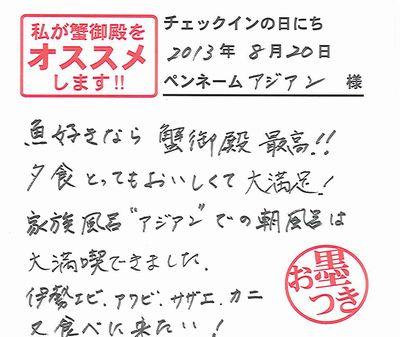 私が蟹御殿を
オススメ
します!!
チェックインの日にち
2013年 8月20日
ペンネーム アジアン 様
魚好きなら 蟹御殿 最高!!
夕食 とってもおいしくて 大満足!
家族風呂“アジアン”での朝風呂は
大満喫できました.
伊勢エビ. アワビ. サザエ. カニ
又 食べに来たい!
お墨つき